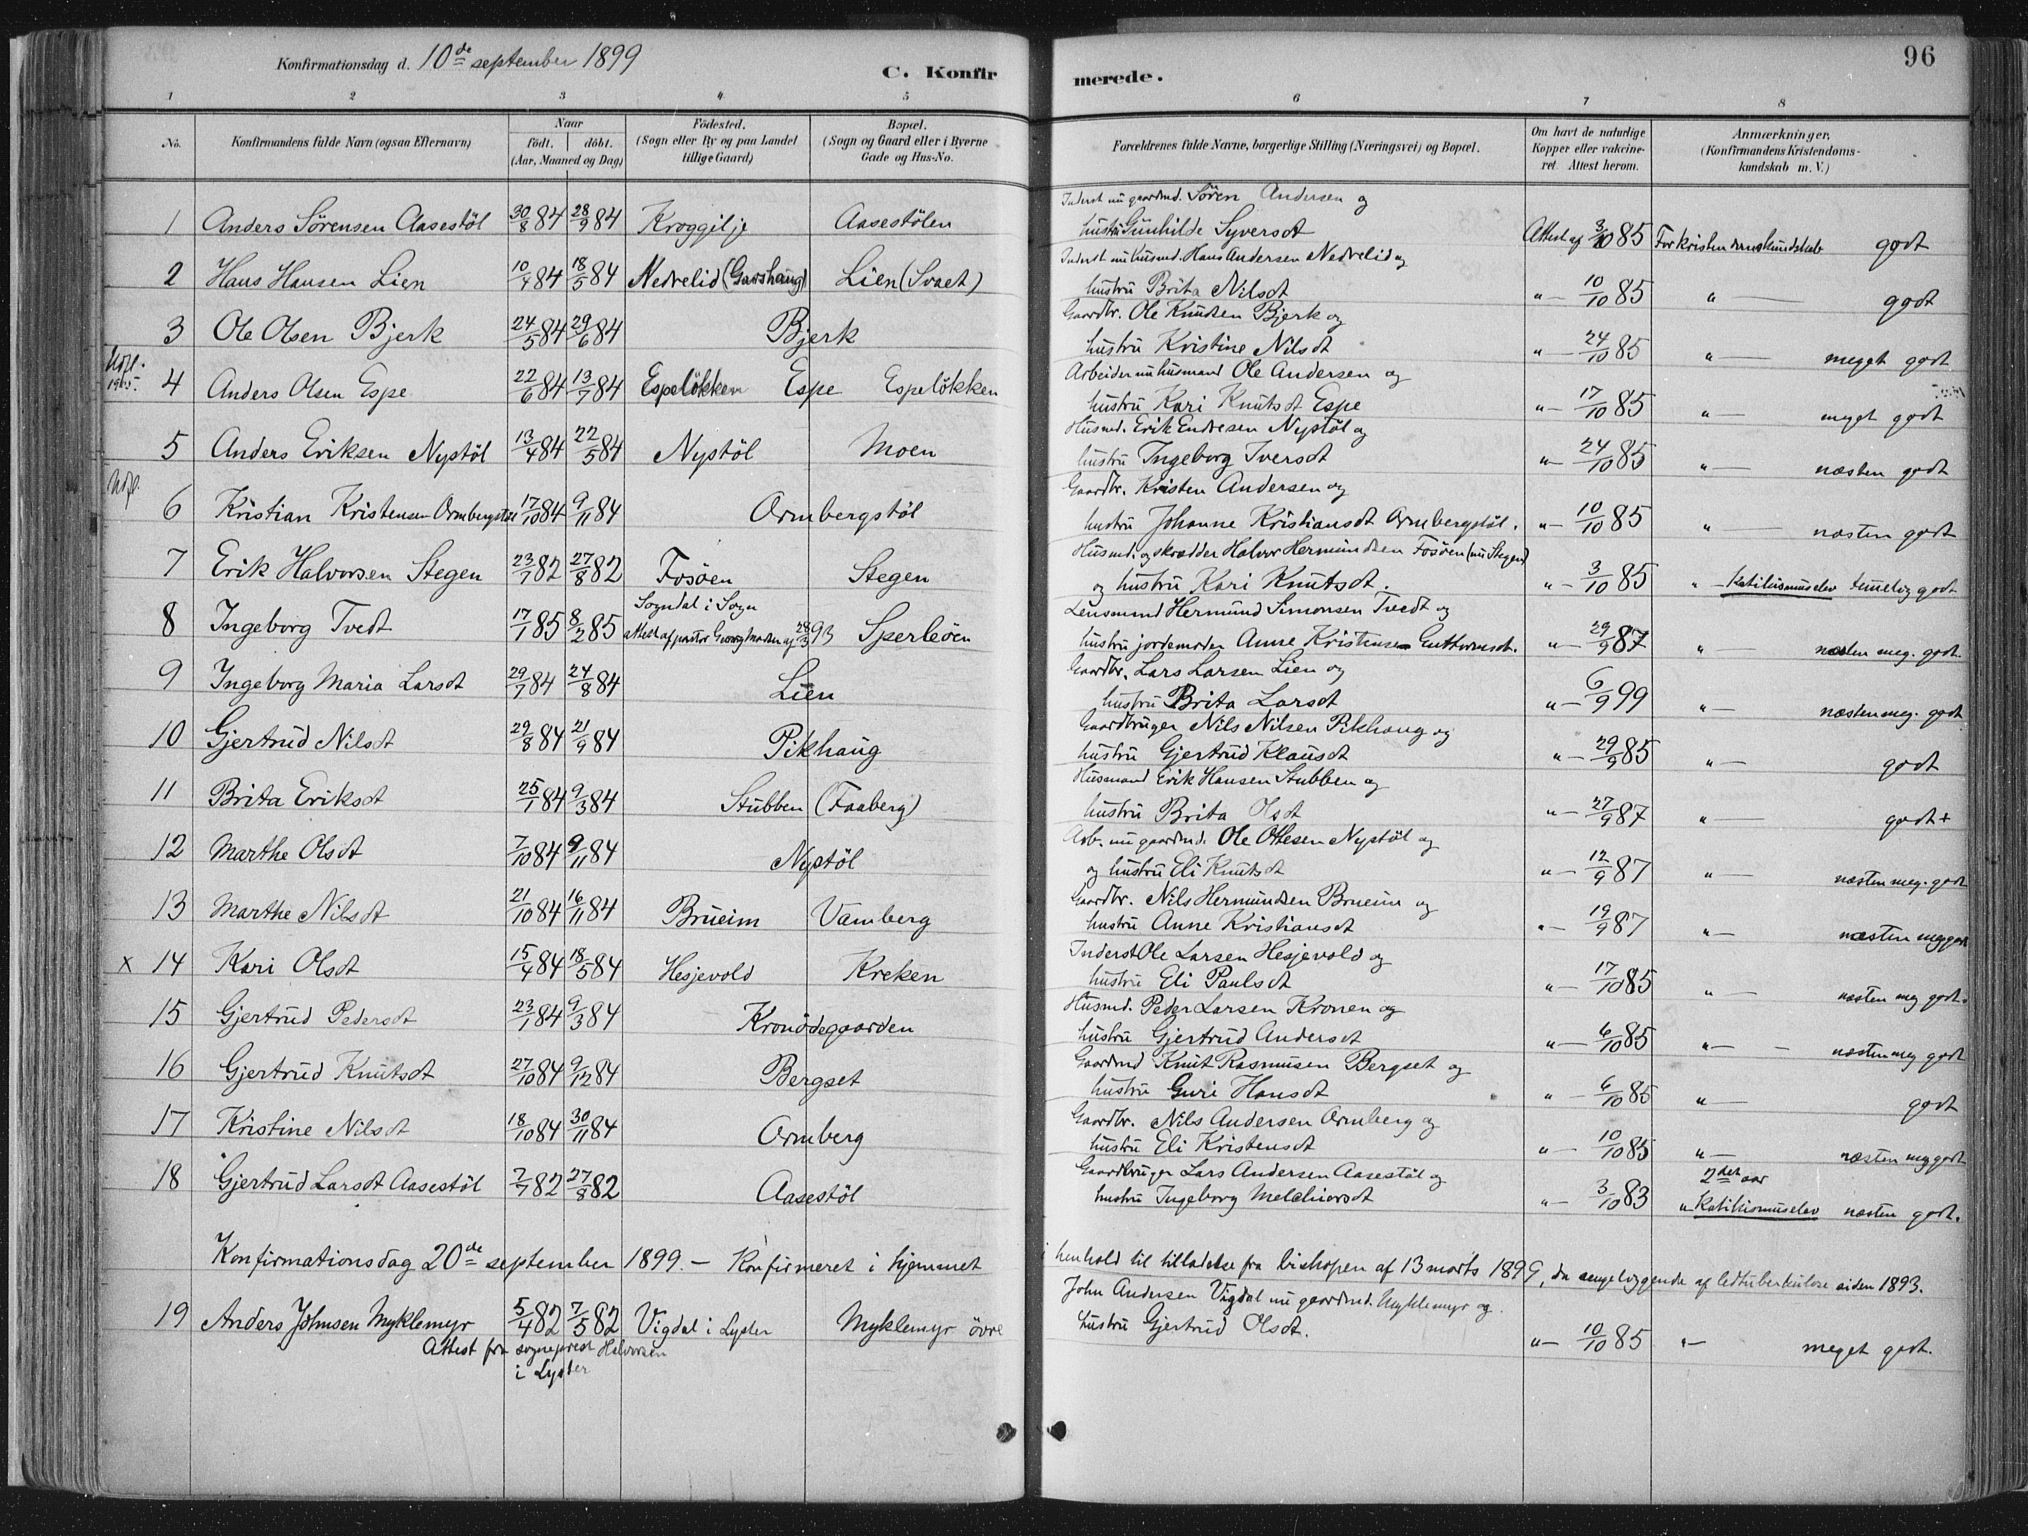 Konfirmationsdag d. 10de september 1899
C. Konfirmerede.
96
1 2 3 4 5 6 7 8
No.
Konfirmandens fulde Navn (ogsaa Efternavn)
Naar
födt. döbt.
(Aar, Maaned og Dag)
Födested.
(Sogn eller By og paa Landet
tillige Gaard)
Bopæl.
(Sogn og Gaard eller i Byerne
Gade og Hus-No.
Forældrenes fulde Navne, borgerlige Stilling (Næringsvei) og Bopæl.
Om havt de naturlige
Kopper eller vakcine-
ret Attest herom.
Anmærkninger.
(Konfirmandens Kristendoms-
kundskab m. V.)
Inderst nu gaardmd. Sören Andersen og
1 Anders Sörensen Aasestöl 30/8 84 28/9 84 Kroggilje Aasestölen hustru Gunhilde Syversdt Attest af 3/10 85 For kristendomskundskab godt
Inderst nu husmd. Hans Andersen Nedrelid og
2 Hans Hansen Lien 10/4 84 18/5 84 Nedrelid (Garshaug) Lien (Svaet) hustru Brita Nilsdt " — 10/10 85 " — godt
Gaardbr. Ole Knudsen Bjerk og
3 Ole Olsen Bjerk 24/5 84 29/6 84 Bjerk hustru Kristine Nilsdt " — 24/10 85 " — meget godt
Arbeider nu husmand Ole Andersen og
Udfl. 1905. 4 Anders Olsen Espe 22/6 84 13/7 84 Espelökken Espe Espelökken hustru Kari Knutsdt Espe " — 17/10 85 " — meget godt
Husmd. Erik Endresen Nystöl og
5 Anders Eriksen Nystöl 13/4 84 22/5 84 Nystöl Moen hustru Ingeborg Iversdt " — 24/10 85 " — næsten godt
Gaardbr. Kristen Andersen og
Udfl. 6 Kristian Kristensen Ormbergstöl 17/10 84 9/11 84 Ormbergstöl hustru Johanne Kristiansdt Ormbergstöl. " — 10/10 85 " — næsten godt
Husmd. og skrædder Halvor Hermundsen Fosöen (nu Stegen)
7 Erik Halvorsen Stegen 23/7 82 27/8 82 Fosöen Stegen og hustru Kari Knutsdt. " — 3/10 85 " — Katikismuselev temelig godt
Sogndal i Sogn Lensmand Hermund Simonsen Tvedt og
8 Ingeborg Tvedt 17/1 85 8/2 85 attest af pastor Georg Madsen af 28/3 93 Sperleöen hustru jordemoder Anne Kristense Guttormsdt. " — 29/9 87 " — næsten meg. godt.
Gaardbr. Lars Larsen Lien og
9 Ingeborg Maria Larsdt 29/7 84 24/8 84 Lien hustru Brita Larsdt " — 6/9 99 " — næsten meg. godt
Gaardbruger Nils Nilsen Pikhaug og
10 Gjertrud Nilsdt 29/8 84 21/9 84 Pikhaug hustru Gjertrud Klausdt " — 29/9 85 " — godt
Husmand Erik Hansen Stubben og
11 Brita Eriksdt 25/1 84 9/3 84 Stubben (Faaberg) hustru Brita Olsdt " — 27/9 87 " — godt+
Arb. nu gaardmd. Ole Ottesen Nystöl og
12 Marthe Olsdt 7/10 84 9/11 84 Nystöl og hustru Eli Knutsdt " — 12/9 87 " — næsten meg. godt
Gaardbr. Nils Hermundsen Brueim og
13 Marthe Nilsdt 21/10 84 16/11 84 Brueim Vamberg hustru Anne Kristiansdt " — 19/9 87 " — næsten meg godt
Inderst Ole Larsen Hesjevold og
x 14 Kari Olsdt 15/4 84 18/5 84 Hesjevold Kreken hustru Eli Paulsdt " — 17/10 85 " — næsten meg godt.
Husmd. Peder Larsen Kronen og
15 Gjertrud Pedersdt 23/1 84 9/3 84 Kronödegaarden hustru Gjertrud Andersdt " — 6/10 85 " — næsten meg godt
Gaardmd Knut Rasmusen Bergset og
16 Gjertrud Knutsdt 27/10 84 9/12 84 Bergset hustru Guri Hansdt " — 6/10 85 " — godt
Gaardbr. Nils Andersen Ormberg og
17 Kristine Nilsdt 18/10 84 30/11 84 Ormberg hustru Eli Kristensdt " — 10/10 85 " — næsten meg godt
Gaardbruger Lars Andersen Aasestöl og 2det aar
18 Gjertrud Larsdt Aasestöl 2/7 82 27/8 82 Aasestöl hustru Ingeborg Melchiorsdt " — 3/10 83 " Katikismuselev næsten godt.
Konfirmationsdag 20de september 1899. — Konfirmeret i hjemmet i henhold til tilladelse fra biskopen af 13 marts 1899, da sengeliggende af ledtuberkulose siden 1893.
John Andersen Vigdal nu gaardmd. Myklemyr og
19 Anders Johnsen Myklemyr 5/4 82 7/5 82 Vigdal i Lyster Myklemyr övre hustru Gjertrud Olsdt. " — 10/10 85 " — meget godt.
Attest fra sogneprest Halvorsen
i Lyster